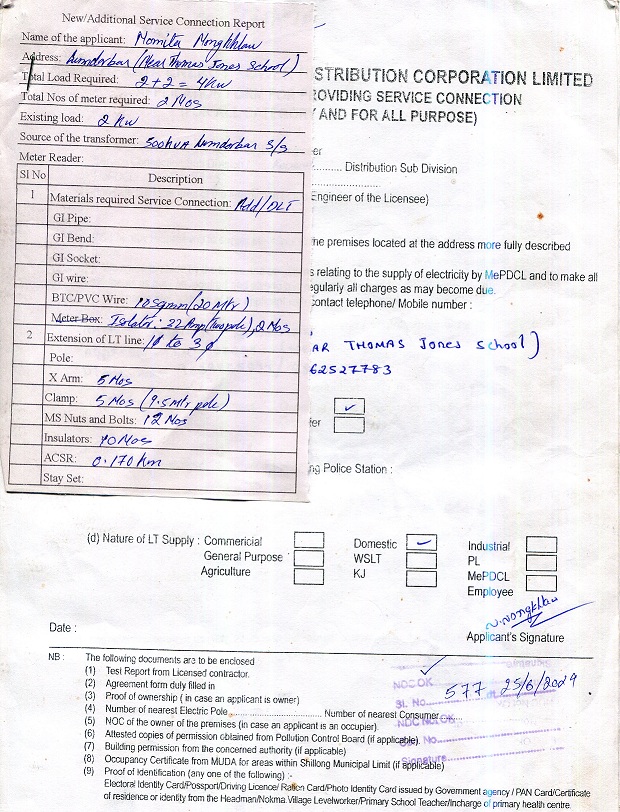 New/Additional Service Connection Report
Name of the applicant: Nomita Nongkhlaw
Address: Lumdorbar (Near Thomas Jones School)
Total Load Required: 2+2 = 4KW
Total Nos of meter required: 2 Nos
Existing load: 2 KW
Source of the transformer: 500KVA Lumdorbar S/S
Meter Reader:
Sl No Description
1 Materials required Service Connection: Add/DLT
GI Pipe:
GI Bend:
GI Socket:
GI wire:
BTC/PVC Wire: 10sqmm (20 Mtr)
Meter Box: Isolator: 32 Amp (Two pole), 2 Nos
2 Extension of LT line: 1φ to 3φ
Pole:
X Arm: 5 Nos
Clamp: 5 Nos (9.5 Mtr pole)
MS Nuts and Bolts: 12 Nos
Insulators: 10 Nos
ACSR: 0.170 Km
Stay Set:
STRIBUTION CORPORATION LIMITED
ROVIDING SERVICE CONNECTION
Y AND FOR ALL PURPOSE)
er
Distribution Sub Division
Engineer of the Licensee)
he premises located at the address more fully described
s relating to the supply of electricity by MePDCL and to make all
egularly all charges as may become due.
contact telephone/ Mobile number :
AR THOMAS Jones School)
62527783
er
ng Police Station :
(d) Nature of LT Supply : Commercial Domestic Industrial
General Purpose WSLT PL
Agriculture KJ MePDCL
Employee
N. Nongkhlaw
Applicant's Signature
Date :
NB : The following documents are to be enclosed
(1) Test Report from Licensed contractor.
(2) Agreement form duly filled in
(3) Proof of ownership ( in case an applicant is owner)
(4) Number of nearest Electric Pole.............................. Number of nearest Consumer.......
(5) NOC of the owner of the premises (in case an applicant is occupier).
(6) Attested copies of permission obtained from Pollution Control Board (if applicable).
(7) Building permission from the concerned authority (if applicable)
(8) Occupancy Certificate from MUDA for areas within Shillong Municipal Limit (if applicable)
(9) Proof of Identification (any one of the following) :-
Electoral Identity Card/Possport/Driving Licence/ Ration Card/Photo Identity Card issued by Government agency / PAN Card/Certificate
of residence or identity from the Headman/Nokma.Village Levelworker/Primary School Teacher/Incharge of primary health centre.
NOC OK
Sl. No. 577 25/6/2029
NOC Not OK
No.
Signature